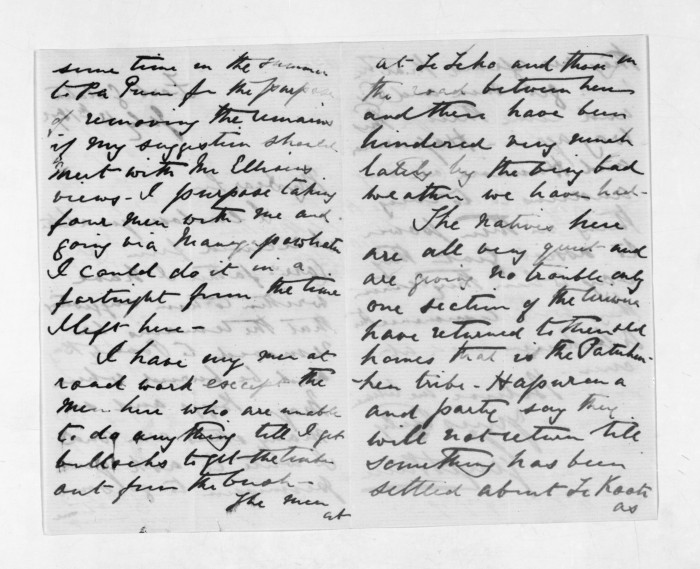 some time in the summer
to Pa Puni for the purpose
of removing the remains
if my suggestion should
meet with Mr Ellison's
views - I purpose taking
four men with me and
going via Maungapowhatu
I could do it in a
fortnight from the time
I left here -
I have my men at
road work except the
men here who are unable
to do anything till I get
bullocks to get the timber
out from the bush -
The men
at
at Te Teko and those on
the road between here
and there have been
hindered very much
lately by the very bad
weather we have had -
The natives here
are all very quiet and
are giving no trouble only
one section of the
have returned to their old
homes that is the Patuheu-
heu tribe - Hapurona
and party say they
will not return till
something has been
settled about Te Kooti
as